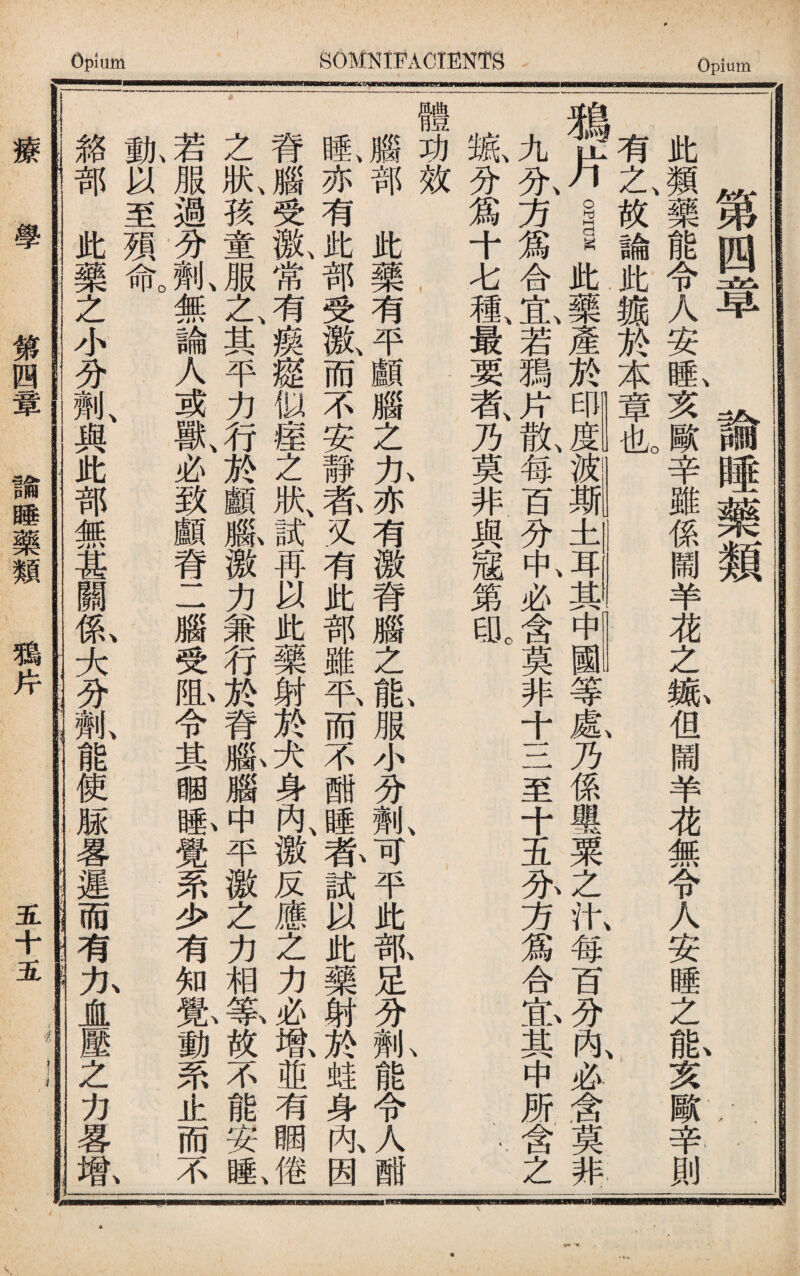 Opium
SOMNIFACIENTS
Opium
第四章　論睡藥類
此類藥能令人安睡、亥歐辛雖係鬧羊花之𧏾、但鬧羊花無令人安睡之能、亥歐辛則
有之、故論此𧏾於本章也。
鴉片 OPIUM 此藥產於印度波斯土耳其中國等處、乃係罌粟之汁、每百分內、必含莫非
九分、方爲合宜、若鴉片散、每百分中、必含莫非十三至十五分、方爲合宜、其中所含之
𧏾、分爲十七種、最要者、乃莫非與寇第印。
體功效
腦部　此藥有平顱腦之力、亦有激脊腦之能、服小分劑、可平此部、足分劑、能令人酣
睡、亦有此部受激、而不安靜者、又有此部雖平、而不酣睡者、試以此藥射於蛙身內、因
脊腦受激、常有瘈瘲似痓之狀、試再以此藥射於犬身內、激反應之力必增、並有睏倦
之狀、孩童服之、其平力行於顱腦、激力兼行於脊腦、腦中平激之力相等、故不能安睡、
若服過分劑、無論人或獸、必致顱脊二腦受阻、令其睏睡、覺系少有知覺、動系止而不
動、以至殞命。
絡部　此藥之小分劑、與此部無甚關係、大分劑、能使脉畧遲而有力、血壓之力畧增、
療學　第四章　論睡藥類　鴉片　五十五